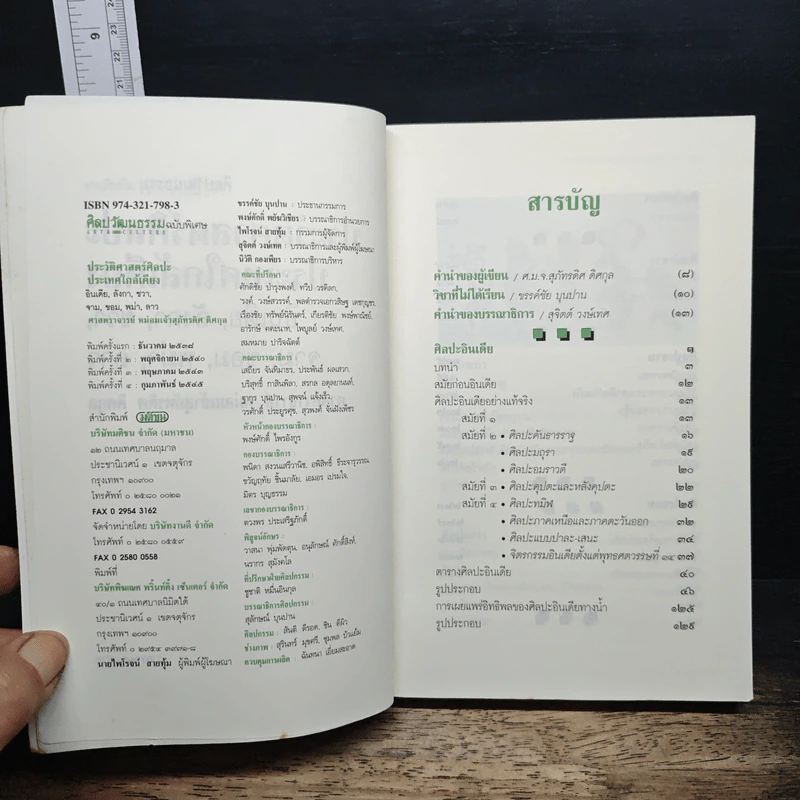 9
21
22
23
24
ISBN 974-321-798-3
ศิลปวัฒนธรรมฉบับพิเศษ
ประวัติศาสตร์ศิลปะ
ประเทศใกล้เคียง
อินเดีย, ลังกา, ชวา,
จาม, ขอม, พม่า, ลาว
ศาสตราจารย์ หม่อมเจ้าสุภัทรดิศ ดิศกุล
พิมพ์ครั้งแรก : ธันวาคม ๒๕๓๘
พิมพ์ครั้งที่ ๒ : พฤศจิกายน ๒๕๔๐
พิมพ์ครั้งที่ ๓ : พฤษภาคม ๒๕๔๓
พิมพ์ครั้งที่ ๔ : กุมภาพันธ์ ๒๕๔๕
สำนักพิมพ์ มติชน
บริษัทมติชน จำกัด (มหาชน)
๑๒ ถนนเทศบาลนฤมาล
ประชานิเวศน์ ๑ เขตจตุจักร
กรุงเทพฯ ๑๐๙๐๐
โทรศัพท์ ๐ ๒๕๘๐ ๐๐๒๑
FAX 0 2954 3162
จัดจำหน่ายโดย บริษัทงานดี จำกัด
โทรศัพท์ ๐ ๒๕๘๐ ๐๕๕๙
FAX 0 2580 0558
พิมพ์ที่
บริษัทพิฆเณศ พริ้นท์ติ้ง เซ็นเตอร์ จำกัด
๔๐/๑ ถนนเทศบาลนิมิตใต้
ประชานิเวศน์ ๑ เขตจตุจักร
กรุงเทพฯ ๑๐๙๐๐
โทรศัพท์ ๐ ๒๙๕๔ ๓๙๙๑-๘
นายไพโรจน์ สายทุ้ม ผู้พิมพ์ผู้โฆษณา
ขรรค์ชัย บุนปาน : ประธานกรรมการ
พงษ์ศักดิ์ พยัฆวิเชียร : บรรณาธิการอำนวยการ
ไพโรจน์ สายทุ้ม : กรรมการผู้จัดการ
สุจิตต์ วงษ์เทศ : บรรณาธิการและผู้พิมพ์ผู้โฆษณา
นิวัติ กองเพียร : บรรณาธิการบริหาร
คณะที่ปรึกษา :
ศักดิชัย บำรุงพงศ์, ทวีป วรดิลก,
'รงค์ วงษ์สวรรค์, พลตำรวจเอกวสิษฐ เดชกุญชร,
เรืองชัย ทรัพย์นิรันดร์, เกียรติชัย พงษ์พาณิชย์,
อารักษ์ คคะนาท, ไพบูลย์ วงษ์เทศ,
สมหมาย ปาริจฉัตต์
คณะบรรณาธิการ :
เสถียร จันทิมาธร, ประพันธ์ ผลเสวก,
บริสุทธิ์ กาสินพิลา, สรกล อดุลยานนท์,
ฐากูร บุนปาน, สุพจน์ แจ้งเร็ว,
วรศักดิ์ ประยูรศุข, สุวพงศ์ จั่นฝังเพ็ชร
หัวหน้ากองบรรณาธิการ :
พงษ์ศักดิ์ ไพรอังกูร
กองบรรณาธิการ :
พนิดา สงวนเสรีวานิช, อพิสิทธิ์ ธีระจารุวรรณ,
ขวัญฤทัย ชิ้นมาลัย, เอมอร เปรมใจ,
มิตร บุญธรรม
เลขากองบรรณาธิการ :
ดวงพร ประเสริฐภักดิ์
พิสูจน์อักษร :
วาสนา พุ่มพัดตุน, อนุลักษณ์ ศักดิ์สิงห์,
นรากร สุมังคโล
ที่ปรึกษาฝ่ายศิลปกรรม :
ชูชาติ หมื่นอินกุล
บรรณาธิการศิลปกรรม :
สุลักษณ์ บุนปาน
ศิลปกรรม : สันติ ดีรอด, ชิน ดีผิว
ช่างภาพ : สุรินทร์ มุขศรี, ชุมพล บัวแย้ม
ควบคุมการผลิต : ฉันทนา เอี่ยมสะอาด
สารบัญ
คำนำของผู้เขียน / ศ.ม.จ.สุภัทรดิศ ดิศกุล (๘)
วิชาที่ไม่ได้เรียน / ขรรค์ชัย บุนปาน (๑๐)
คำนำของบรรณาธิการ / สุจิตต์ วงษ์เทศ (๑๓)
ศิลปะอินเดีย ๑
บทนำ ๓
สมัยก่อนอินเดีย ๑๒
ศิลปะอินเดียอย่างแท้จริง ๑๓
สมัยที่ ๑ ๑๓
สมัยที่ ๒ • ศิลปะคันธารราฐ ๑๖
• ศิลปะมถุรา ๑๙
• ศิลปะอมราวดี ๒๐
สมัยที่ ๓ • ศิลปะคุปตะและหลังคุปตะ ๒๒
สมัยที่ ๔ • ศิลปะทมิฬ ๒๙
• ศิลปะภาคเหนือและภาคตะวันออก ๓๒
• ศิลปะแบบปาละ-เสนะ ๓๔
• จิตรกรรมอินเดียตั้งแต่พุทธศตวรรษที่ ๑๔ ๓๗
ตารางศิลปะอินเดีย ๔๐
รูปประกอบ ๔๑
การเผยแพร่อิทธิพลของศิลปะอินเดียทางน้ำ ๑๒๕
รูปประกอบ ๑๒๙